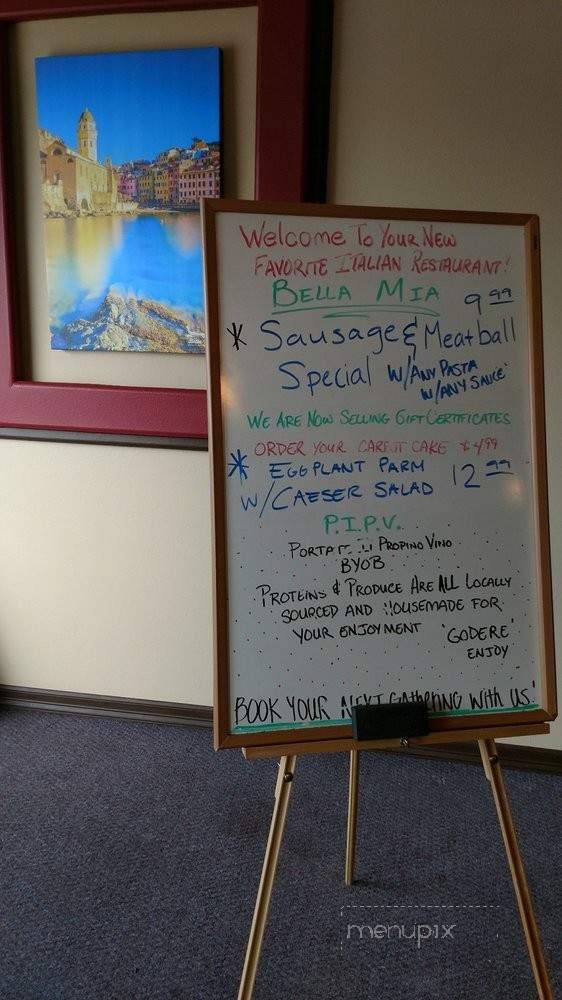 Welcome To Your New
Favorite Italian Restaurant!
Bella Mia
9.99
* Sausage & Meatball
Special w/Any Pasta
w/Any Sauce
We Are Now Selling Gift Certificates
Order Your Carrot Cake $4.99
* Eggplant Parm
w/Caeser Salad 12.99
P.I.P.V.
Propino Vino
BYOB
Proteins & Produce Are All Locally
Sourced and Housemade for
Your Enjoyment 'Godere'
Enjoy
Book Your Next Gathering With Us!
menupix